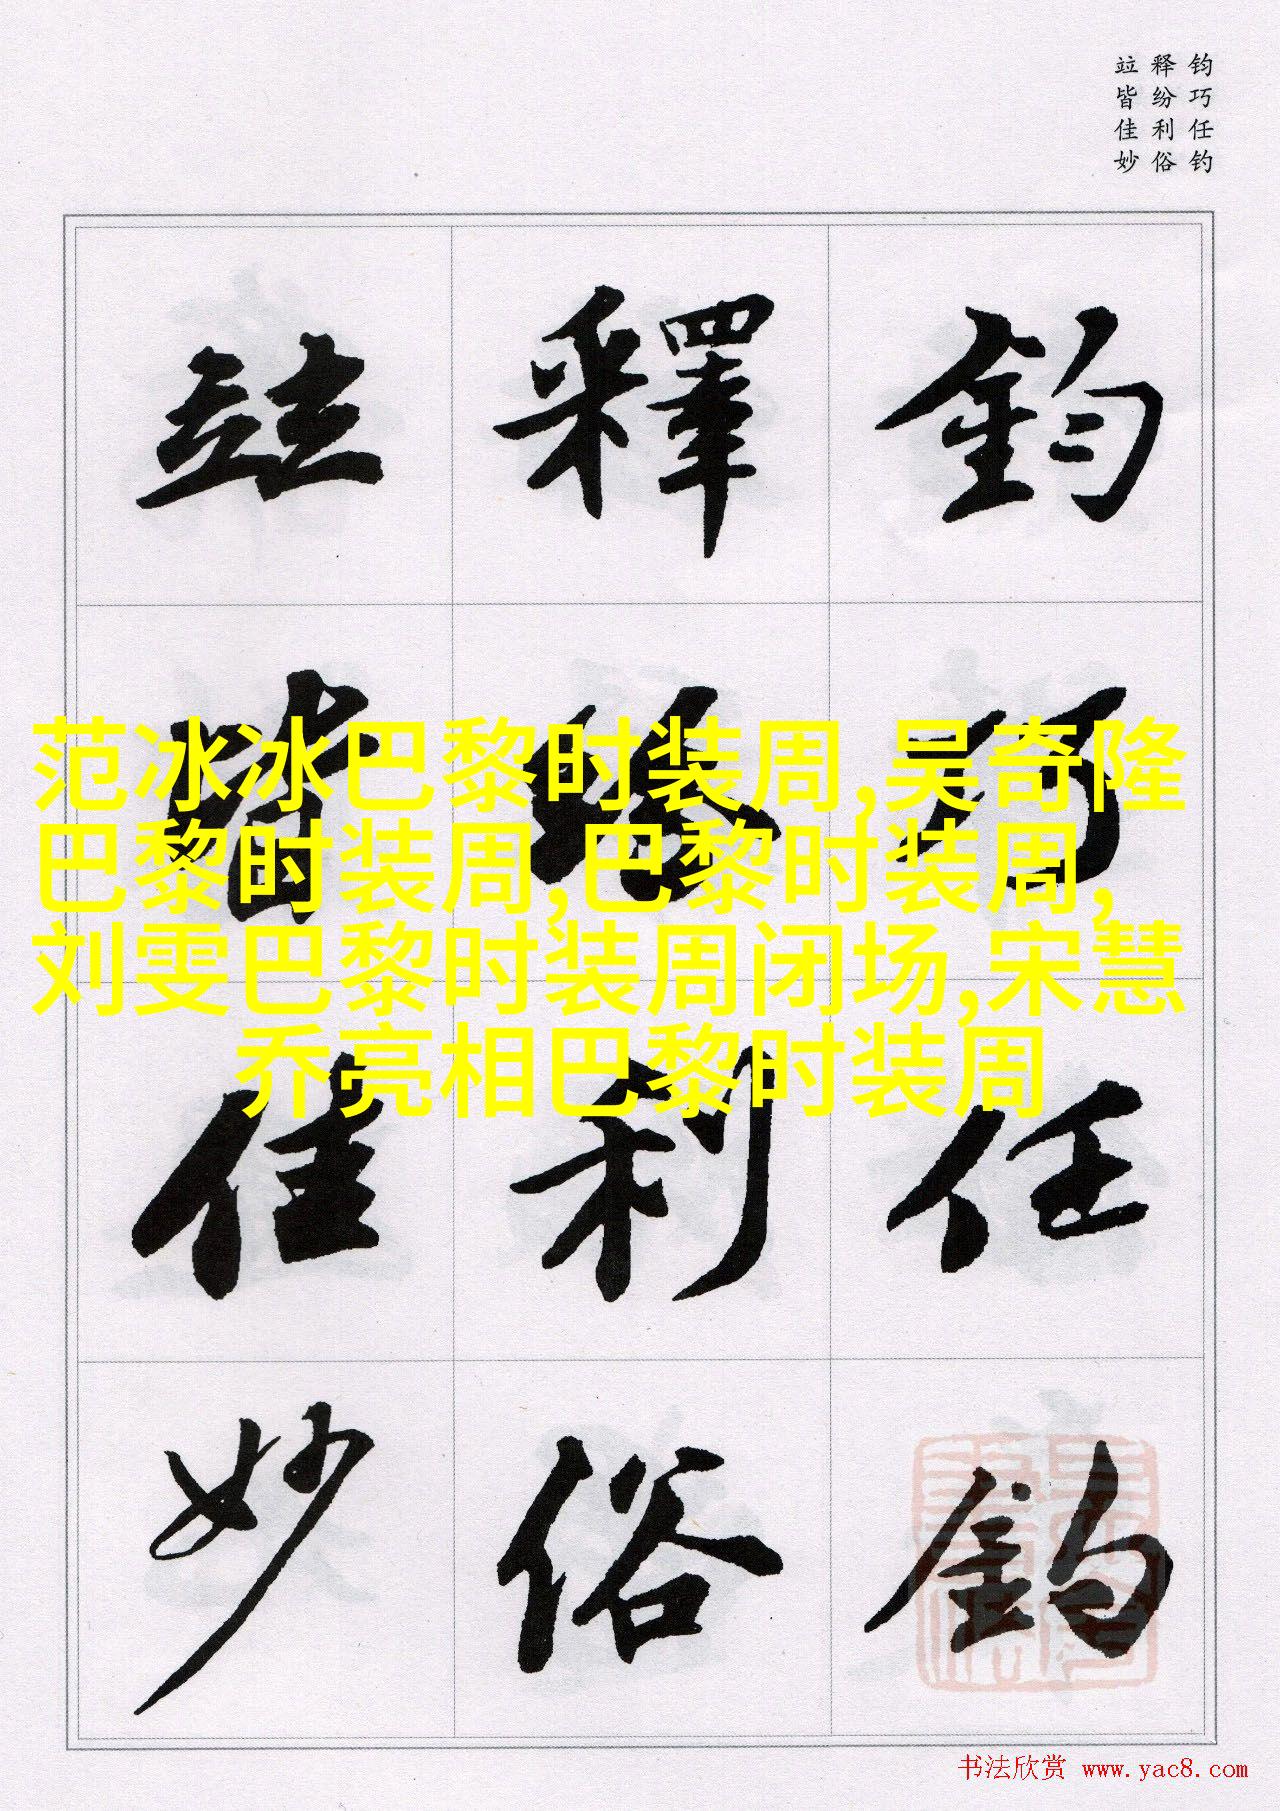 钧巧任钓
释纷利俗
竝皆佳妙
鈞
巧
任
釣
釋
紛
利
俗
竝
皆
佳
妙
范冰冰巴黎时装周,吴奇隆
巴黎时装周,巴黎时装周,
刘雯巴黎时装周闭场,宋慧
乔亮相巴黎时装周
书法欣赏 www.yac8.com